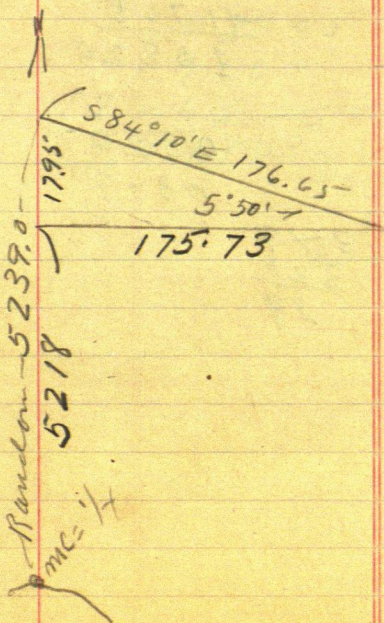 S 84°10' E 176.65
17.95
5°50'
175.73
Random 5239.0
5218
mc = 1/4